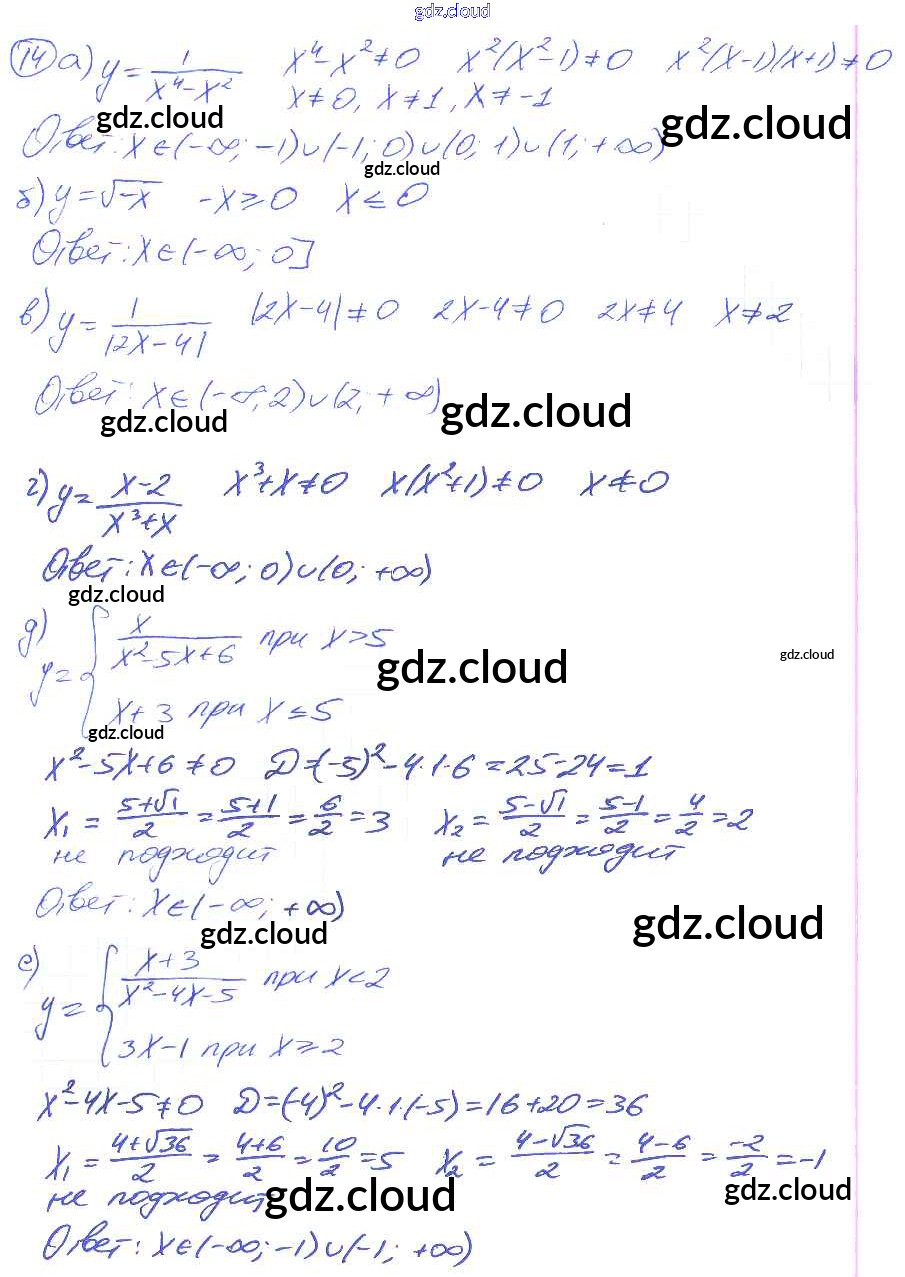 gdz.cloud
14 а) y = 1/(x⁴-x²) x⁴-x²≠0 x²(x²-1)≠0 x²(x-1)(x+1)≠0
x≠0, x≠1, x≠-1
gdz.cloud gdz.cloud
Ответ: x∈(-∞; -1)∪(-1; 0)∪(0; 1)∪(1; +∞)
gdz.cloud
б) y=√-x -x≥0 x≤0
Ответ: x∈(-∞; 0]
в) y = 1/|2x-4| |2x-4|≠0 2x-4≠0 2x≠4 x≠2
Ответ: x∈(-∞; 2)∪(2; +∞)
gdz.cloud gdz.cloud
г) y = (x-2)/(x³+x) x³+x≠0 x(x²+1)≠0 x≠0
Ответ: x∈(-∞; 0)∪(0; +∞)
gdz.cloud
д) y = { x/(x²-5x+6) при x>5
gdz.cloud gdz.cloud
x+3 при x≤5
gdz.cloud
x²-5x+6≠0 D=(-5)²-4·1·6=25-24=1
x₁ = (5+√1)/2 = (5+1)/2 = 6/2 = 3 x₂ = (5-√1)/2 = (5-1)/2 = 4/2 = 2
не подходит не подходит
Ответ: x∈(-∞; +∞)
gdz.cloud gdz.cloud
е) y = { (x+3)/(x²-4x-5) при x<2
3x-1 при x≥2
x²-4x-5≠0 D=(-4)²-4·1·(-5)=16+20=36
x₁ = (4+√36)/2 = (4+6)/2 = 10/2 = 5 x₂ = (4-√36)/2 = (4-6)/2 = -2/2 = -1
не подходит
gdz.cloud gdz.cloud
Ответ: x∈(-∞; -1)∪(-1; +∞)